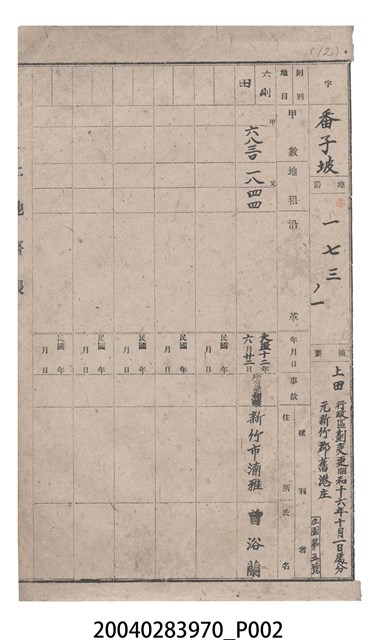 (12)
字 番子坡
地番 一七三ノ一
摘要 上田 行政區劃変更昭和十六年十月一日處分
元新竹郡舊港庄
正圖第五號
則別 六則
地目 田
甲數 甲 六八三〇
地租 元 一八四四
沿革
年月日 大正十二年六月廿二日
事故
權利者
住所 新竹市湳雅
氏名 曾浴蘭
民國 年 月 日
民國 年 月 日
民國 年 月 日
民國 年 月 日
民國 年 月 日
民國 年 月 日
土地臺帳
20040283970_P002